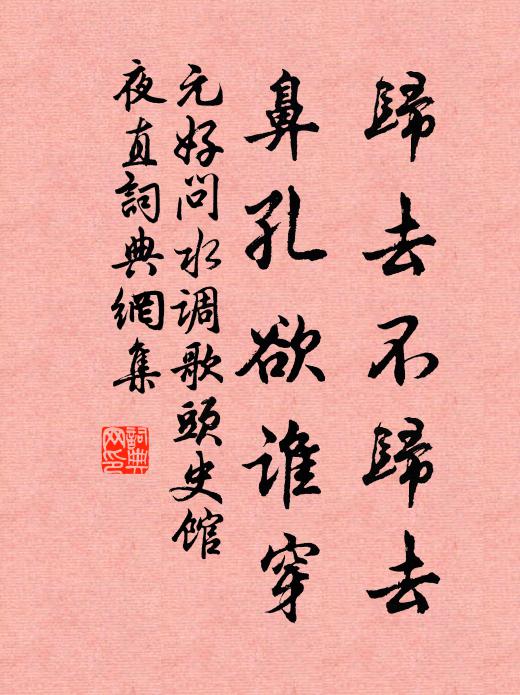 歸去不歸去
鼻孔欲誰穿
元好問水调歌頭史馆
夜直詞典網集
詞典
网印